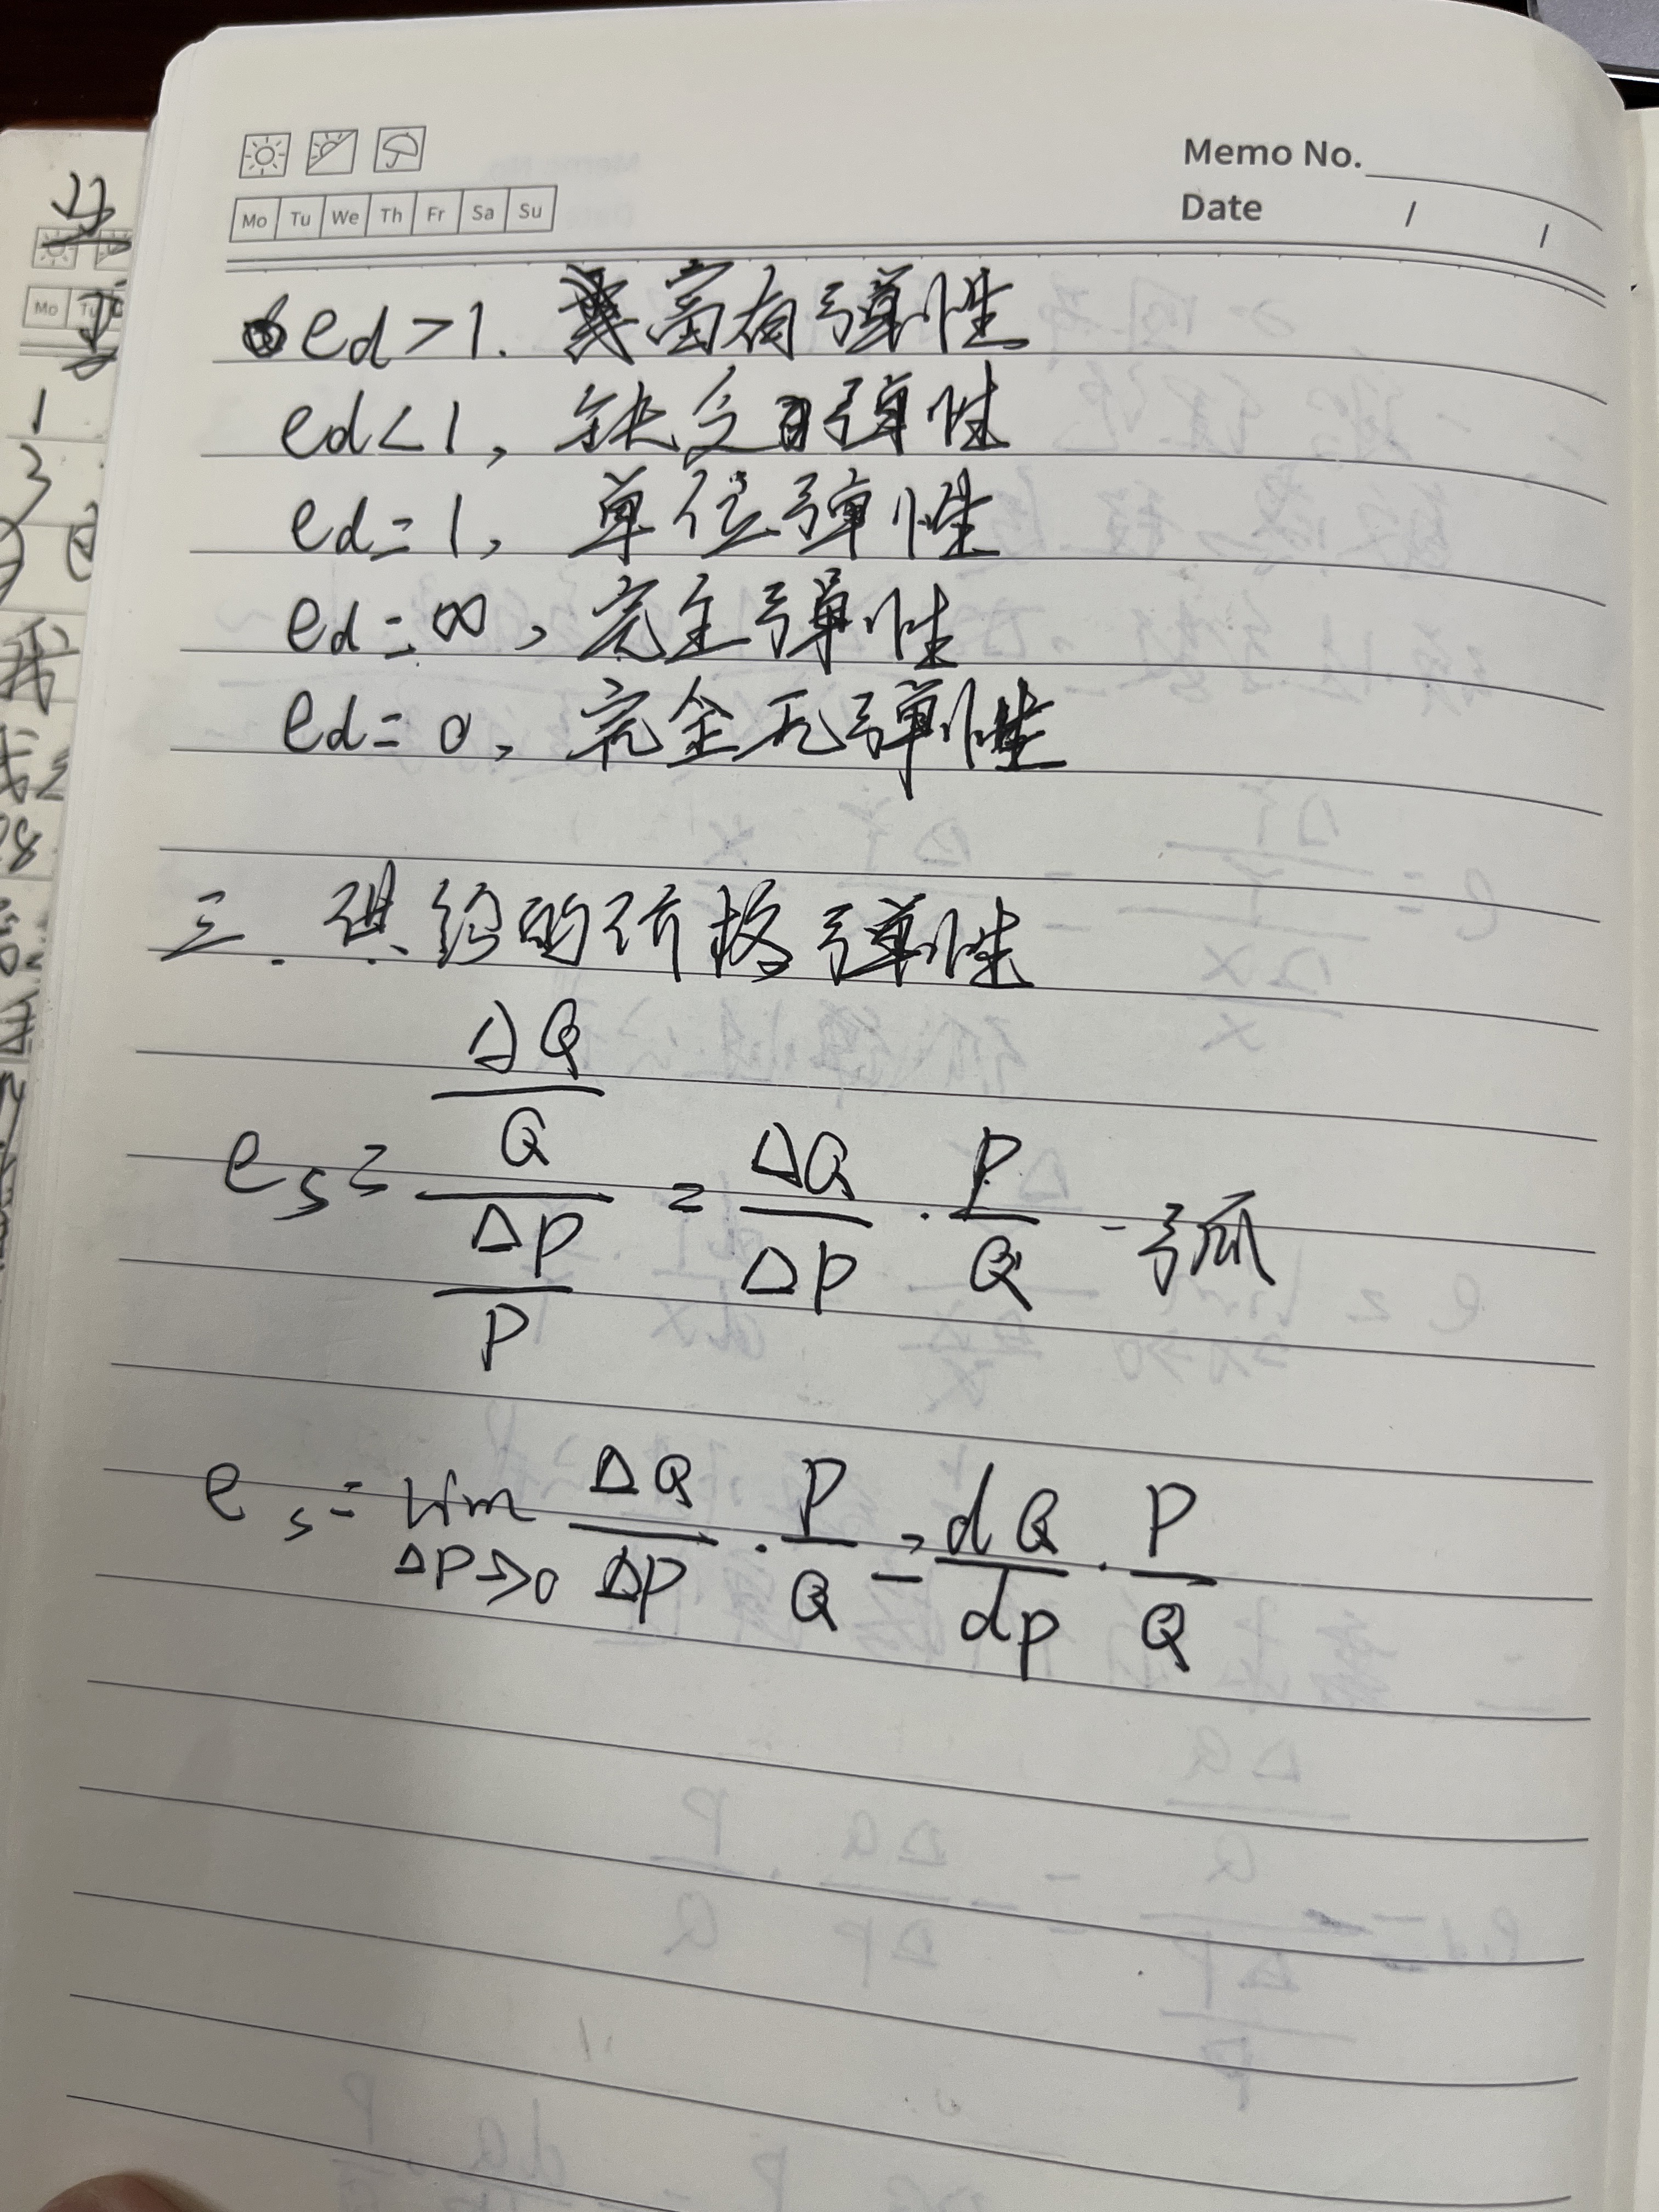 Memo No.
Mo Tu We Th Fr Sa Su
Date / /
ed>1. 富有弹性
ed<1, 缺乏弹性
ed=1, 单位弹性
ed=∞, 完全弹性
ed=0, 完全无弹性
三. 供给的价格弹性
es = (ΔQ/Q)/(ΔP/P) = ΔQ/ΔP · P/Q - 弧
es = lim ΔP→0 ΔQ/ΔP · P/Q = dQ/dp · P/Q